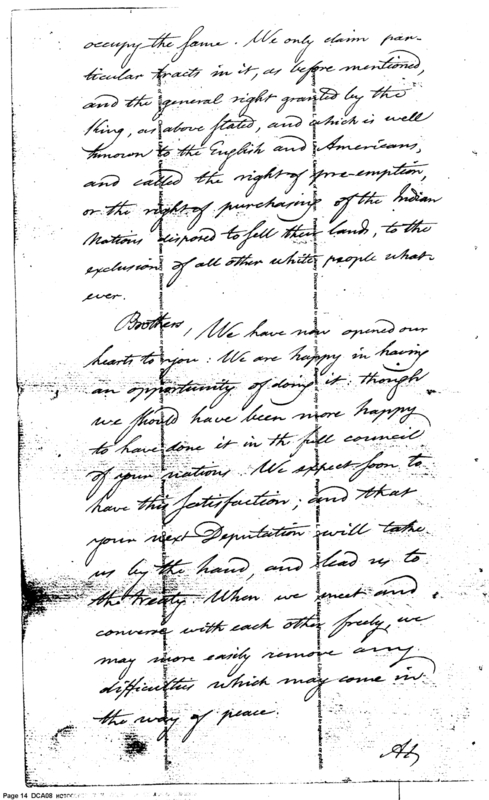 occupy the same. We only claim par-
ticular tracts in it, as before mentioned,
and the general right granted by the
King, as above stated, and which is well
known to the English and Americans,
and called the right of pre-emption,
or the right of purchasing of the Indian
Nations disposed to sell their lands, to the
exclusion of all other white people what-
ever.
Brothers, We have now opened our
hearts to you: We are happy in having
an opportunity of doing it: though
we should have been more happy
to have done it in the full council
of your nations. We expect soon to
have this satisfaction; and that
your next Deputation will take
us by the hand, and lead us to
the treaty. When we meet and
converse with each other freely, we
may more easily remove any
difficulties which may come in
the way of peace.
At
Page 14 DCA08